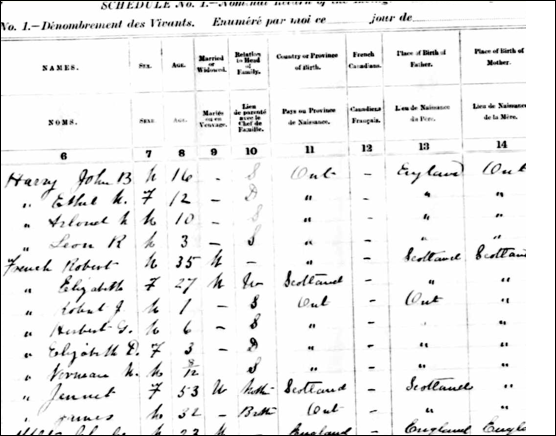 SCHEDULE No. 1.—Nominal Return of the Living
No. 1.—Dénombrement des Vivants. Enuméré par moi ce jour de
NAMES. SEX. AGE. Married or Widowed. Relation to Head of Family. Country or Province of Birth. French Canadians. Place of Birth of Father. Place of Birth of Mother.
NOMS. SEXE AGE. Marié ou en Veuvage. Lien de parenté avec le Chef de Famille. Pays ou Province de Naissance. Canadiens Français. Lieu de Naissance du Père. Lieu de Naissance de la Mère.
6 7 8 9 10 11 12 13 14
Harry John B M 16 – S Ont – England Ont
" Ethel M. F 12 – D " – " "
" M 10 – S " – " "
" Leon R M 3 – S " – " "
French Robert M 35 M – " – Scotland Scotland
" Elizabeth F 27 M Scotland – " "
" Robert J M 1 – S Ont – Ont "
" Herbert M 6 – S " – "
" Elizabeth D. F 3 – D " – " "
" Norman M 8/12 S " – " "
" Jennet F 53 W Scotland – Scotland "
" James M 32 – Broth Ont – " "
23 England – England